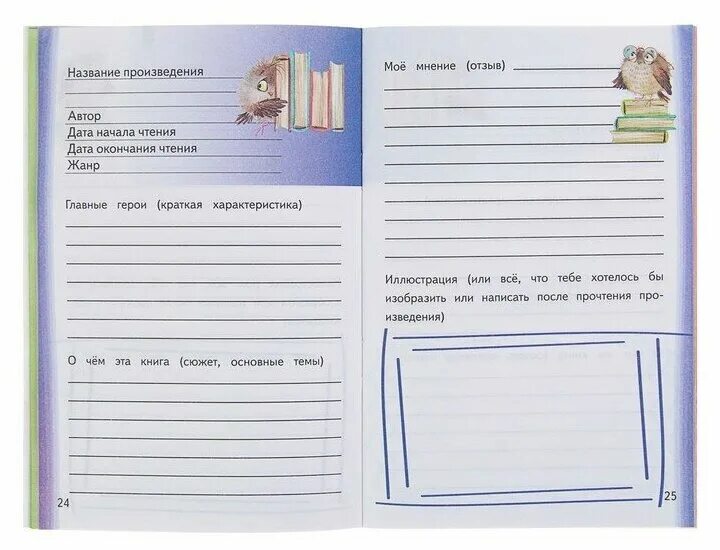 Название произведения
Автор
Дата начала чтения
Дата окончания чтения
Жанр
Главные герои (краткая характеристика)
О чём эта книга (сюжет, основные темы)
24
Моё мнение (отзыв)
Иллюстрация (или всё, что тебе хотелось бы
изобразить или написать после прочтения про-
изведения)
25